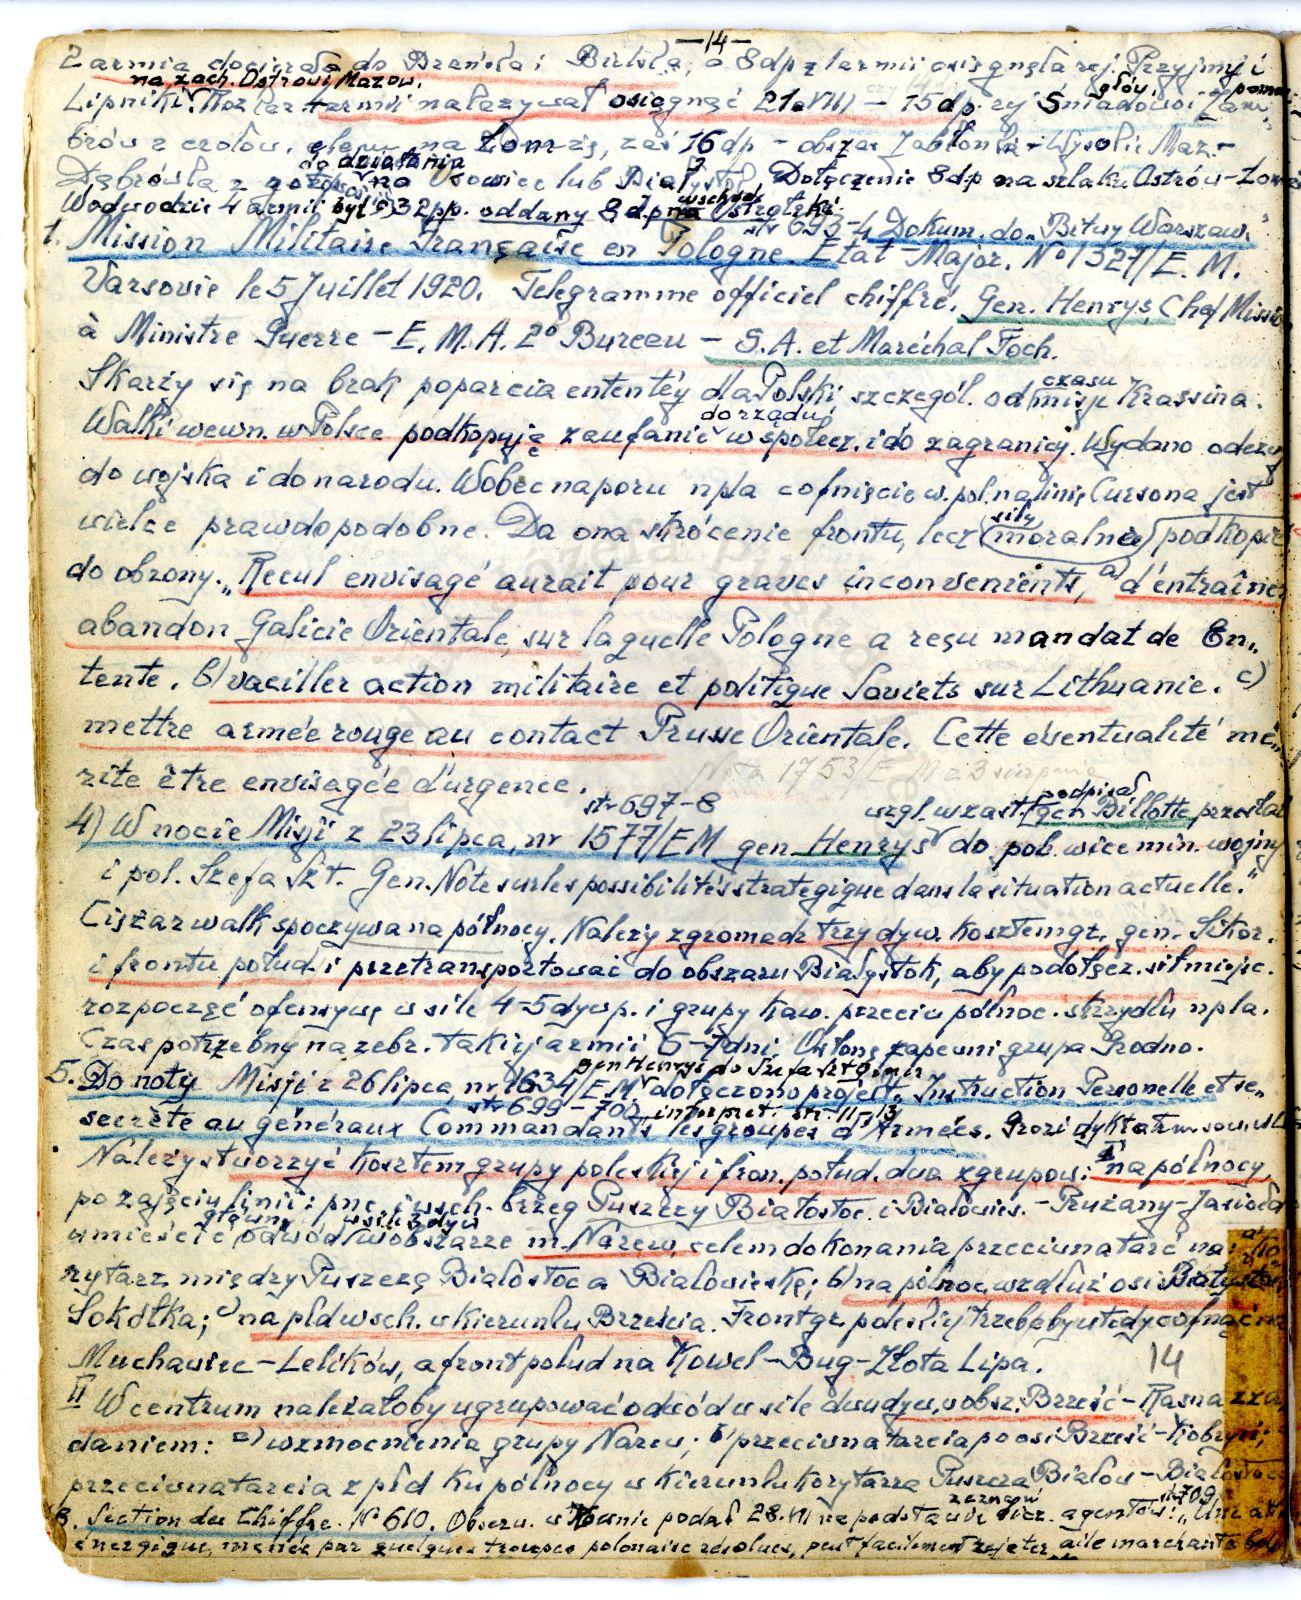 —14—
2 armia docierała do Brańska i Bielska, a 8 dp z 1 armii osiągnęła rej. Przyjmy i
na zach. Ostrowi Mazow. głów. pozna
Lipniki. Rozkaz 1 armii nakazywał osiągnąć 21.VIII — 15 dp. rej Śniadowo i Zam,
brów z czołow. elem. na Łomżę, zaś 16 dp — obszar Jabłonka - Wysokie Maz. -
do działania
Dąbrówka z gotow. na Osowiec lub Białystok. Dołączenie 8 dp na szlaku Ostrów-Łom
wschod.
W odwodzie 4 armii był 32 pp. oddany 8 dp na Ostrołękę.
str 693-4 Dokum. do „Bitwy Warszaw."
1. Mission Militaire Française en Pologne. Etat-Major. No 1327/E.M.
Varsovie le 5 Juillet 1920. Telegramme officiel chiffré. Gen. Henrys, Chef Missio
à Ministre Guerre — E.M.A. 2º Bureau — S.A. et Maréchal Foch.
czasu
Skarży się na brak poparcia ententéy dla Polski szczegól. od misji Krassina.
do rządu
Walki wewn. w Polsce podkopują zaufanie w społecz. i do zagranicy. Wydano odezwy
do wojska i do narodu. Wobec naporu npla cofnięcie w. pol. na linię Cursona jest
siły
wielce prawdopodobne. Da ona skrócenie frontu, lecz moralnie podkopie
do obrony. „Recul envisagé aurait pour graves inconvenients, a) d'entraîner
abandon Galicie Orientale, sur laquelle Pologne a reçu mandat de En„
tente. b) vaciller action militaire et politique Soviets sur Lithuanie. c)
mettre armée rouge au contact Prusse Orientale. Cette éventualité mé„
rite être envisagée d'urgence.
Nota 1753/E.M z 3 sierpnia
str 697-8 wzgl. w zast. podpisał gen Billotte przesłał
4) W nocie Misji z 23 lipca, nr 1577/EM gen. Henrys do pol. wicemin. wojny
i pol. Szefa Szt. Gen. Note sur les possibilités strategique dans la situation actuelle."
Ciężar walk spoczywa na północy. Należy zgromadz trzy dyw. kosztem gr. gen. Sikor.
i frontu połud. i przetransportować do obszaru Białystok, aby po dołącz. sił miejsc.
rozpocząć ofensywę w sile 4-5 dyw p. i grupy kaw. przeciw północ. skrzydłu npla.
Czas potrzebny na zebr. takiej armii 6-7 dni. Osłonę zapewni grupa Grodno.
gen Henrys do Szefa Szt Gener
5. Do noty Misji z 26 lipca, nr 1634/EM dołączono projekt. Instruction Personelle et se„
str 699-702 interpret. str. 11-13
secrète au généraux Commandants les groupes d'Armées. Grozi
Należy stworzyć kosztem grupy poleskiej i fron. połud. dwa zgrupow: I na północy,
po zajęciu linii: pnc. i wsch. brzeg Puszczy Białostoc. i Białowies. - Prużany-Jasiołda
główny w sile 3 dyw
umieścić odwód w obszarze m. Narew, celem dokonania przeciwnatarć na: a) ko„
rytarz między Puszczę Białostoca Białowieską; b) na północ wzdłuż osi Białystok
Sokółka; c) na płd wsch. w kierunku Brześcia. Front gr. poleskiej trzebaby wtedy cofnąć na
Muchawiec-Lelików, a front połud na Kowel-Bug-Złota Lipa.
14
II W centrum należałoby ugrupować odwód w sile dwu dyw. w obsz. Brześć-Kasna z za„
daniem: a) wzmocnienia grupy Narew; b) przeciwnatarcia po osi Brześć-Kobryń;
przeciwnatarcia z płd ku północy w kierunku korytarza Puszcza Białow-Białostoca
zeznań str 709
8. Section du Chiffre. No 610. Obserw. w Kownie podał 28.VII na podstawie agentów: „Une
énergique, menée par quelques troupes polonaise résolues, peut facilement rejeter aile marchante